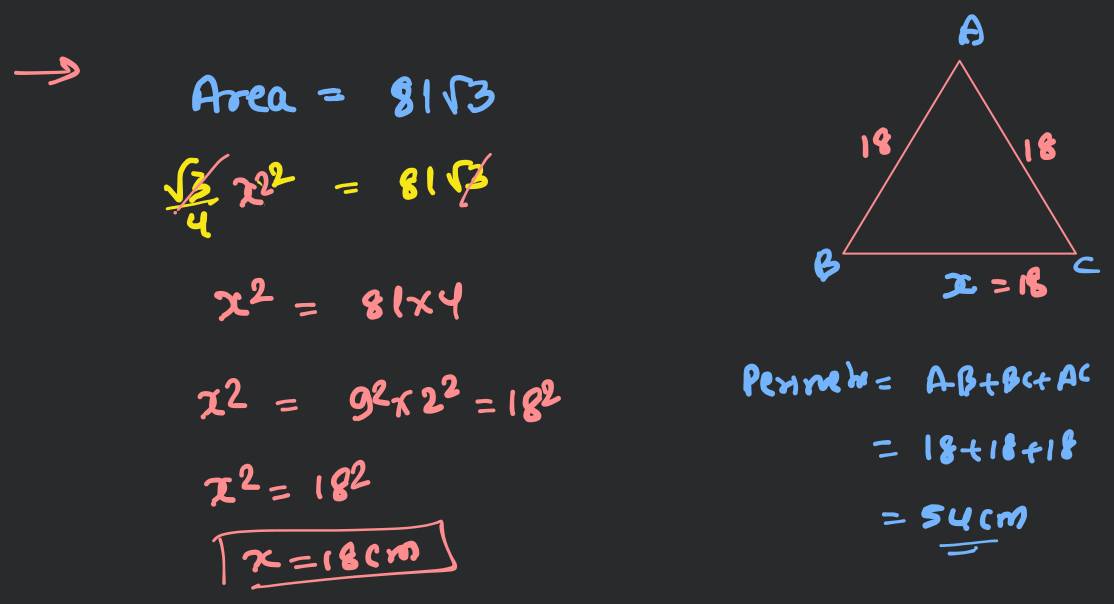 →
Area = 81√3
√3/4 x² ² = 81√3
x² = 81×4
x² = 9²×2² = 18²
x² = 18²
x = 18cm
A
18 18
B C
x = 18
Perimeter = AB+BC+AC
= 18+18+18
= 54cm